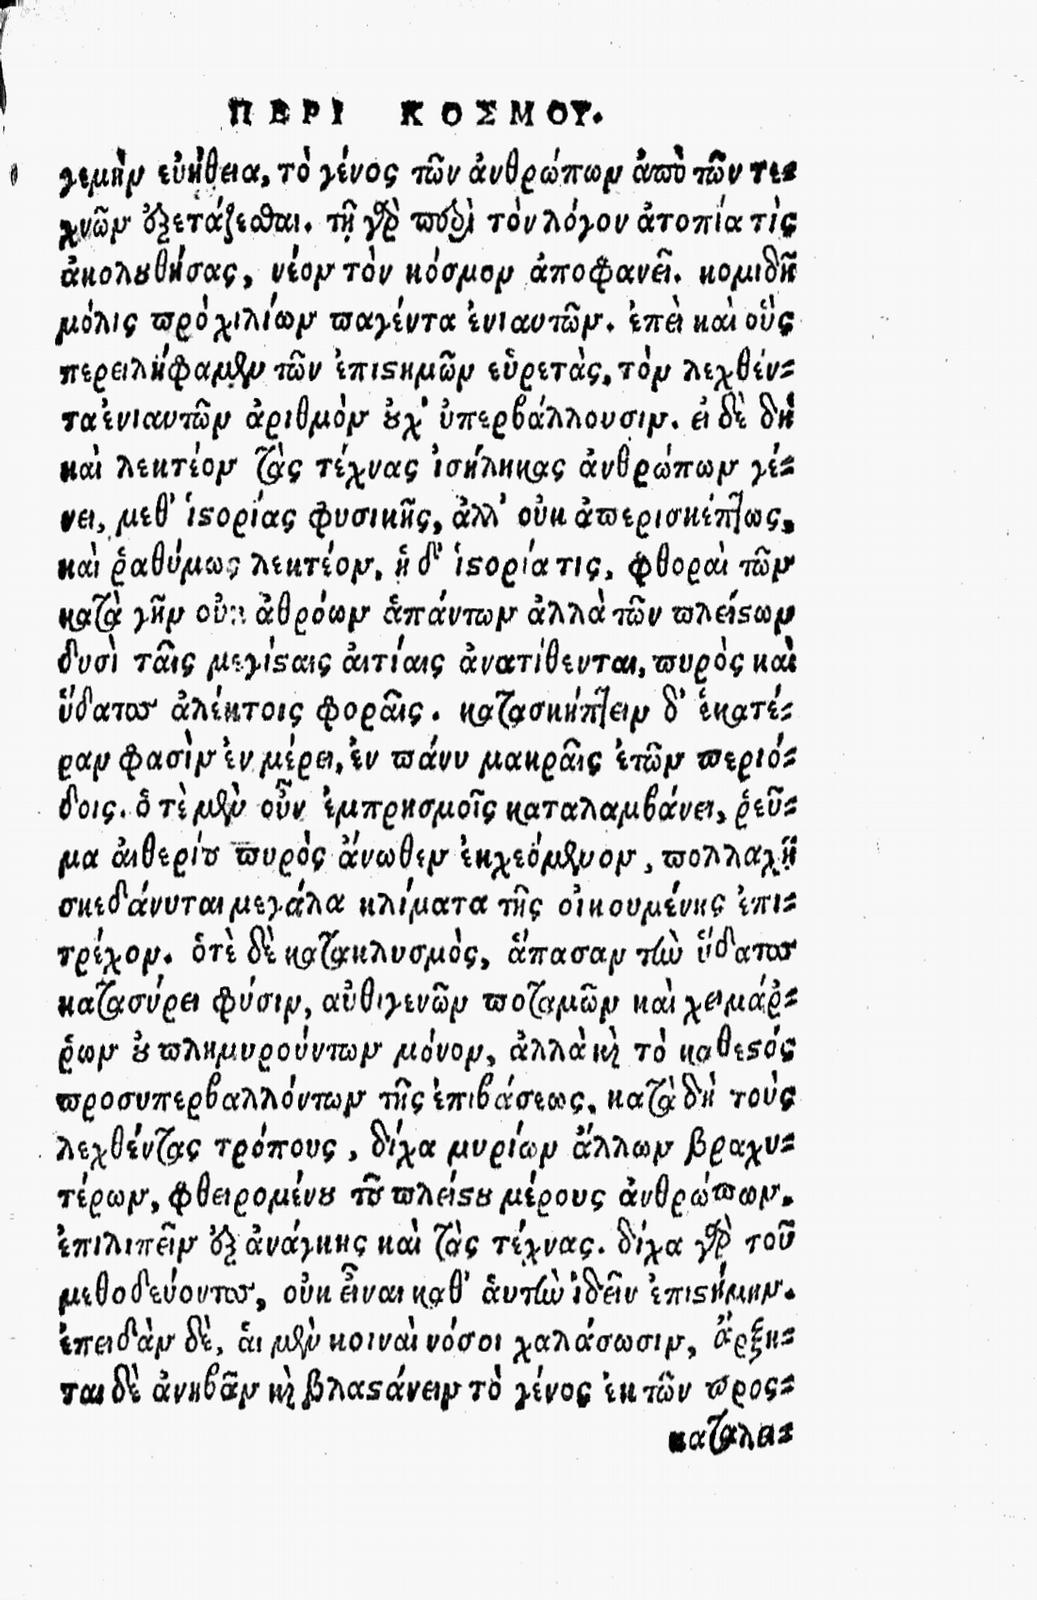 ΠΕΡΙ ΚΟΣΜΟΥ.
γεμὴν εὐήθεια, τὸ γένος τῶν ἀνθρώπων ἀπὸ τῶν τε-
χνῶν ἐξετάζεσθαι. τῇ γὰρ περὶ τὸν λόγον ἀτοπία τὶς
ἀκολουθήσας, νέον τὸν κόσμον ἀποφανεῖ. κομιδῇ
μόλις πρὸ χιλίων παγέντα ἐνιαυτῶν. ἐπεὶ καὶ οὓς
περειλήφαμεν τῶν ἐπιστημῶν εὑρετὰς, τὸν λεχθέν-
τα ἐνιαυτῶν ἀριθμὸν οὐχ' ὑπερβάλλουσιν. εἰ δὲ δὴ
καὶ λεκτέον τὰς τέχνας ἰσήληκας ἀνθρώπων γέ-
νει, μεθ' ἱστορίας φυσικῆς, ἀλλ' οὐκ ἀπερισκέπτως,
καὶ ῥαθύμως λεκτέον, ἡ δ' ἱστορία τις, φθοραὶ τῶν
κατὰ γῆν οὐκ ἀθρόων ἁπάντων ἀλλὰ τῶν πλείστων
δυσὶ ταῖς μεγίσταις αἰτίαις ἀνατίθενται, πυρὸς καὶ
ὕδατος ἀλέκτοις φοραῖς. κατασκήπτειν δ' ἑκατέ-
ραν φασὶν ἐν μέρει, ἐν πάνυ μακραῖς ἐτῶν περιό-
δοις. ὁ τὲ μὲν οὖν ἐμπρησμοῖς καταλαμβάνει, ῥεῦ-
μα αἰθερίου πυρὸς ἄνωθεν ἐκχεόμενον, πολλαχῇ
σκεδάνυται μεγάλα κλίματα τῆς οἰκουμένης ἐπι-
τρέχον. ὁτὲ δὲ κατακλυσμὸς, ἅπασαν τὴν ὕδατος
κατασύρει φύσιν, αὐθιγενῶν ποταμῶν καὶ χειμάῤ-
ῥων οὐ πλημυρούντων μόνον, ἀλλὰ καὶ τὸ καθεστός
προσυπερβαλλόντων τῆς ἐπιβάσεως, κατὰ δὴ τοὺς
λεχθέντας τρόπους, δίχα μυρίων ἄλλων βραχυ-
τέρων, φθειρομένου τοῦ πλείστου μέρους ἀνθρώπων.
ἐπιλιπεῖν ἐξ ἀνάγκης καὶ τὰς τέχνας. δίχα γὰρ τοῦ
μεθοδεύοντος, οὐκ εἶναι καθ' ἁυτὴν ἰδεῖν ἐπιστήμην.
ἐπειδὰν δὲ, ἁι μὲν κοιναὶ νόσοι χαλάσωσιν, ἄρξη-
ται δὲ ἀνηβᾶν καὶ βλαστάνειν τὸ γένος ἐκ τῶν προς-
καταλει-